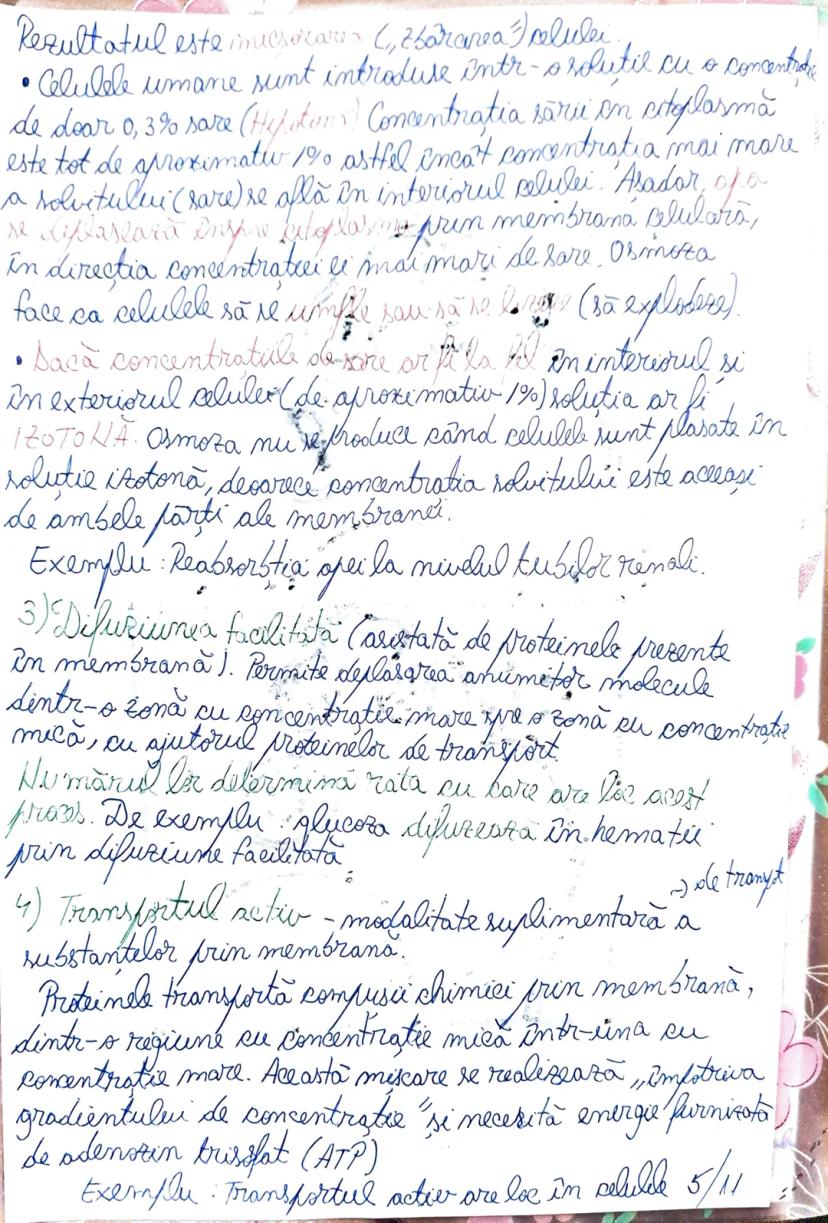 Rezultatul este micșorarea („zbârcirea") celulei.
• Celulele umane sunt introduse într-o soluție cu o concentrație
de doar 0,3% sare (Hipotoni) Concentrația sării în citoplasmă
este tot de aproximativ 1% astfel încât concentrația mai mare
a solvitului (sare) se află în interiorul celulei. Așadar, apa
se deplasează înspre citoplasmă prin membrana celulară,
în direcția concentrației ei mai mari de sare. Osmoza
face ca celulele să se umfle sau să se (să explodeze).
• Dacă concentrațiile de sare ar fi la fel în interiorul și
în exteriorul celulei (de aproximativ 1%) soluția ar fi
IZOTONĂ. Osmoza nu se produce când celulele sunt plasate în
soluție izotonă, deoarece concentrația solvitului este aceeași
de ambele părți ale membranei.
Exemplu : Reabsorbția apei la nivelul tubilor renali.
3) Difuziunea facilitată (asistată de proteinele prezente
în membrană). Permite deplasarea anumitor molecule
dintr-o zonă cu concentrație mare spre o zonă cu concentrație
mică, cu ajutorul proteinelor de transport.
Numărul lor determină rata cu care are loc acest
proces. De exemplu : glucoza difuzează în hematii
prin difuziune facilitată
→ de transpt
4) Transportul activ - modalitate suplimentară a
substanțelor prin membrană.
Proteinele transportă compușii chimici prin membrană,
dintr-o regiune cu concentrație mică într-una cu
concentrație mare. Această mișcare se realizează „împotriva
gradientului de concentrație" și necesită energie furnizată
de adenozin trifosfat (ATP)
Exemplu : Transportul activ are loc în celulele 5/11